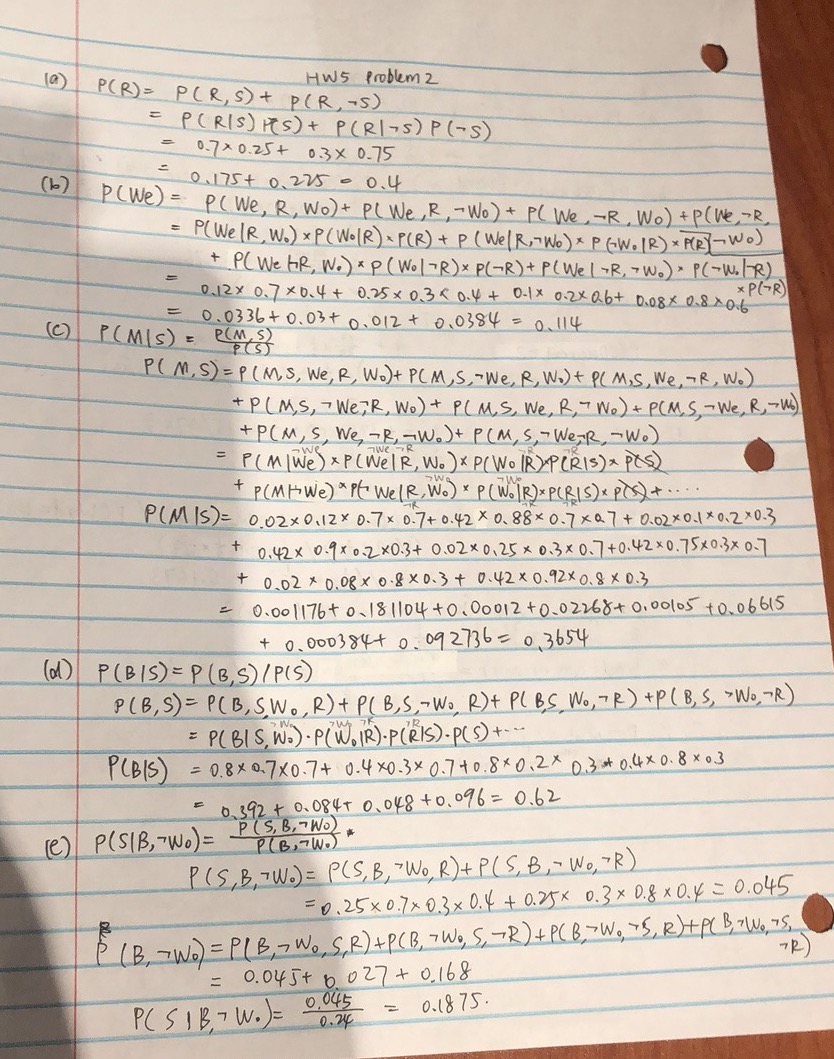 HW5 Problem 2
(a) P(R) = P(R,S) + P(R,¬S)
= P(R|S) P(S) + P(R|¬S) P(¬S)
= 0.7×0.25 + 0.3×0.75
= 0.175 + 0.225 = 0.4
(b) P(We) = P(We, R, Wo) + P(We, R, ¬Wo) + P(We, ¬R, Wo) + P(We, ¬R, ¬Wo)
= P(We|R, Wo) × P(Wo|R) × P(R) + P(We|R,¬Wo) × P(¬Wo|R) × P(R)
+ P(We|¬R, Wo) × P(Wo|¬R) × P(¬R) + P(We|¬R, ¬Wo) × P(¬Wo|¬R) × P(¬R)
= 0.12 × 0.7 × 0.4 + 0.25 × 0.3 × 0.4 + 0.1 × 0.2 × 0.6 + 0.08 × 0.8 × 0.6
= 0.0336 + 0.03 + 0.012 + 0.0384 = 0.114
(c) P(M|S) = P(M,S) / P(S)
P(M,S) = P(M,S, We, R, Wo) + P(M,S,¬We, R, Wo) + P(M,S, We,¬R, Wo)
+ P(M,S, ¬We,¬R, Wo) + P(M,S, We, R, ¬Wo) + P(M,S,¬We, R,¬Wo)
+ P(M, S, We, ¬R, ¬Wo) + P(M, S,¬We,¬R, ¬Wo)
= P(M|We) × P(We|R, Wo) × P(Wo|R) × P(R|S) × P(S)
+ P(M|¬We) × P(¬We|R, Wo) × P(Wo|R) × P(R|S) × P(S) + ····
P(M|S) = 0.02×0.12×0.7×0.7 + 0.42×0.88×0.7×0.7 + 0.02×0.1×0.2×0.3
+ 0.42×0.9×0.2×0.3 + 0.02×0.25×0.3×0.7 + 0.42×0.75×0.3×0.7
+ 0.02×0.08×0.8×0.3 + 0.42×0.92×0.8×0.3
= 0.001176 + 0.181104 + 0.00012 + 0.02268 + 0.00105 + 0.06615
+ 0.000384 + 0.092736 = 0.3654
(d) P(B|S) = P(B,S)/P(S)
P(B,S) = P(B,S,Wo, R) + P(B,S,¬Wo, R) + P(B,S, Wo,¬R) + P(B,S, ¬Wo,¬R)
= P(B|S, Wo)·P(Wo|R)·P(R|S)·P(S) + ···
P(B|S) = 0.8×0.7×0.7 + 0.4×0.3×0.7 + 0.8×0.2×0.3 + 0.4×0.8×0.3
= 0.392 + 0.084 + 0.048 + 0.096 = 0.62
(e) P(S|B,¬Wo) = P(S,B,¬Wo) / P(B,¬Wo)
P(S,B,¬Wo) = P(S,B,¬Wo,R) + P(S,B,¬Wo,¬R)
= 0.25×0.7×0.3×0.4 + 0.25×0.3×0.8×0.4 = 0.045
P(B,¬Wo) = P(B,¬Wo,S,R) + P(B,¬Wo,S,¬R) + P(B,¬Wo,¬S,R) + P(B,¬Wo,¬S,¬R)
= 0.045 + 0.027 + 0.168
P(S|B,¬Wo) = 0.045 / 0.24 = 0.1875.